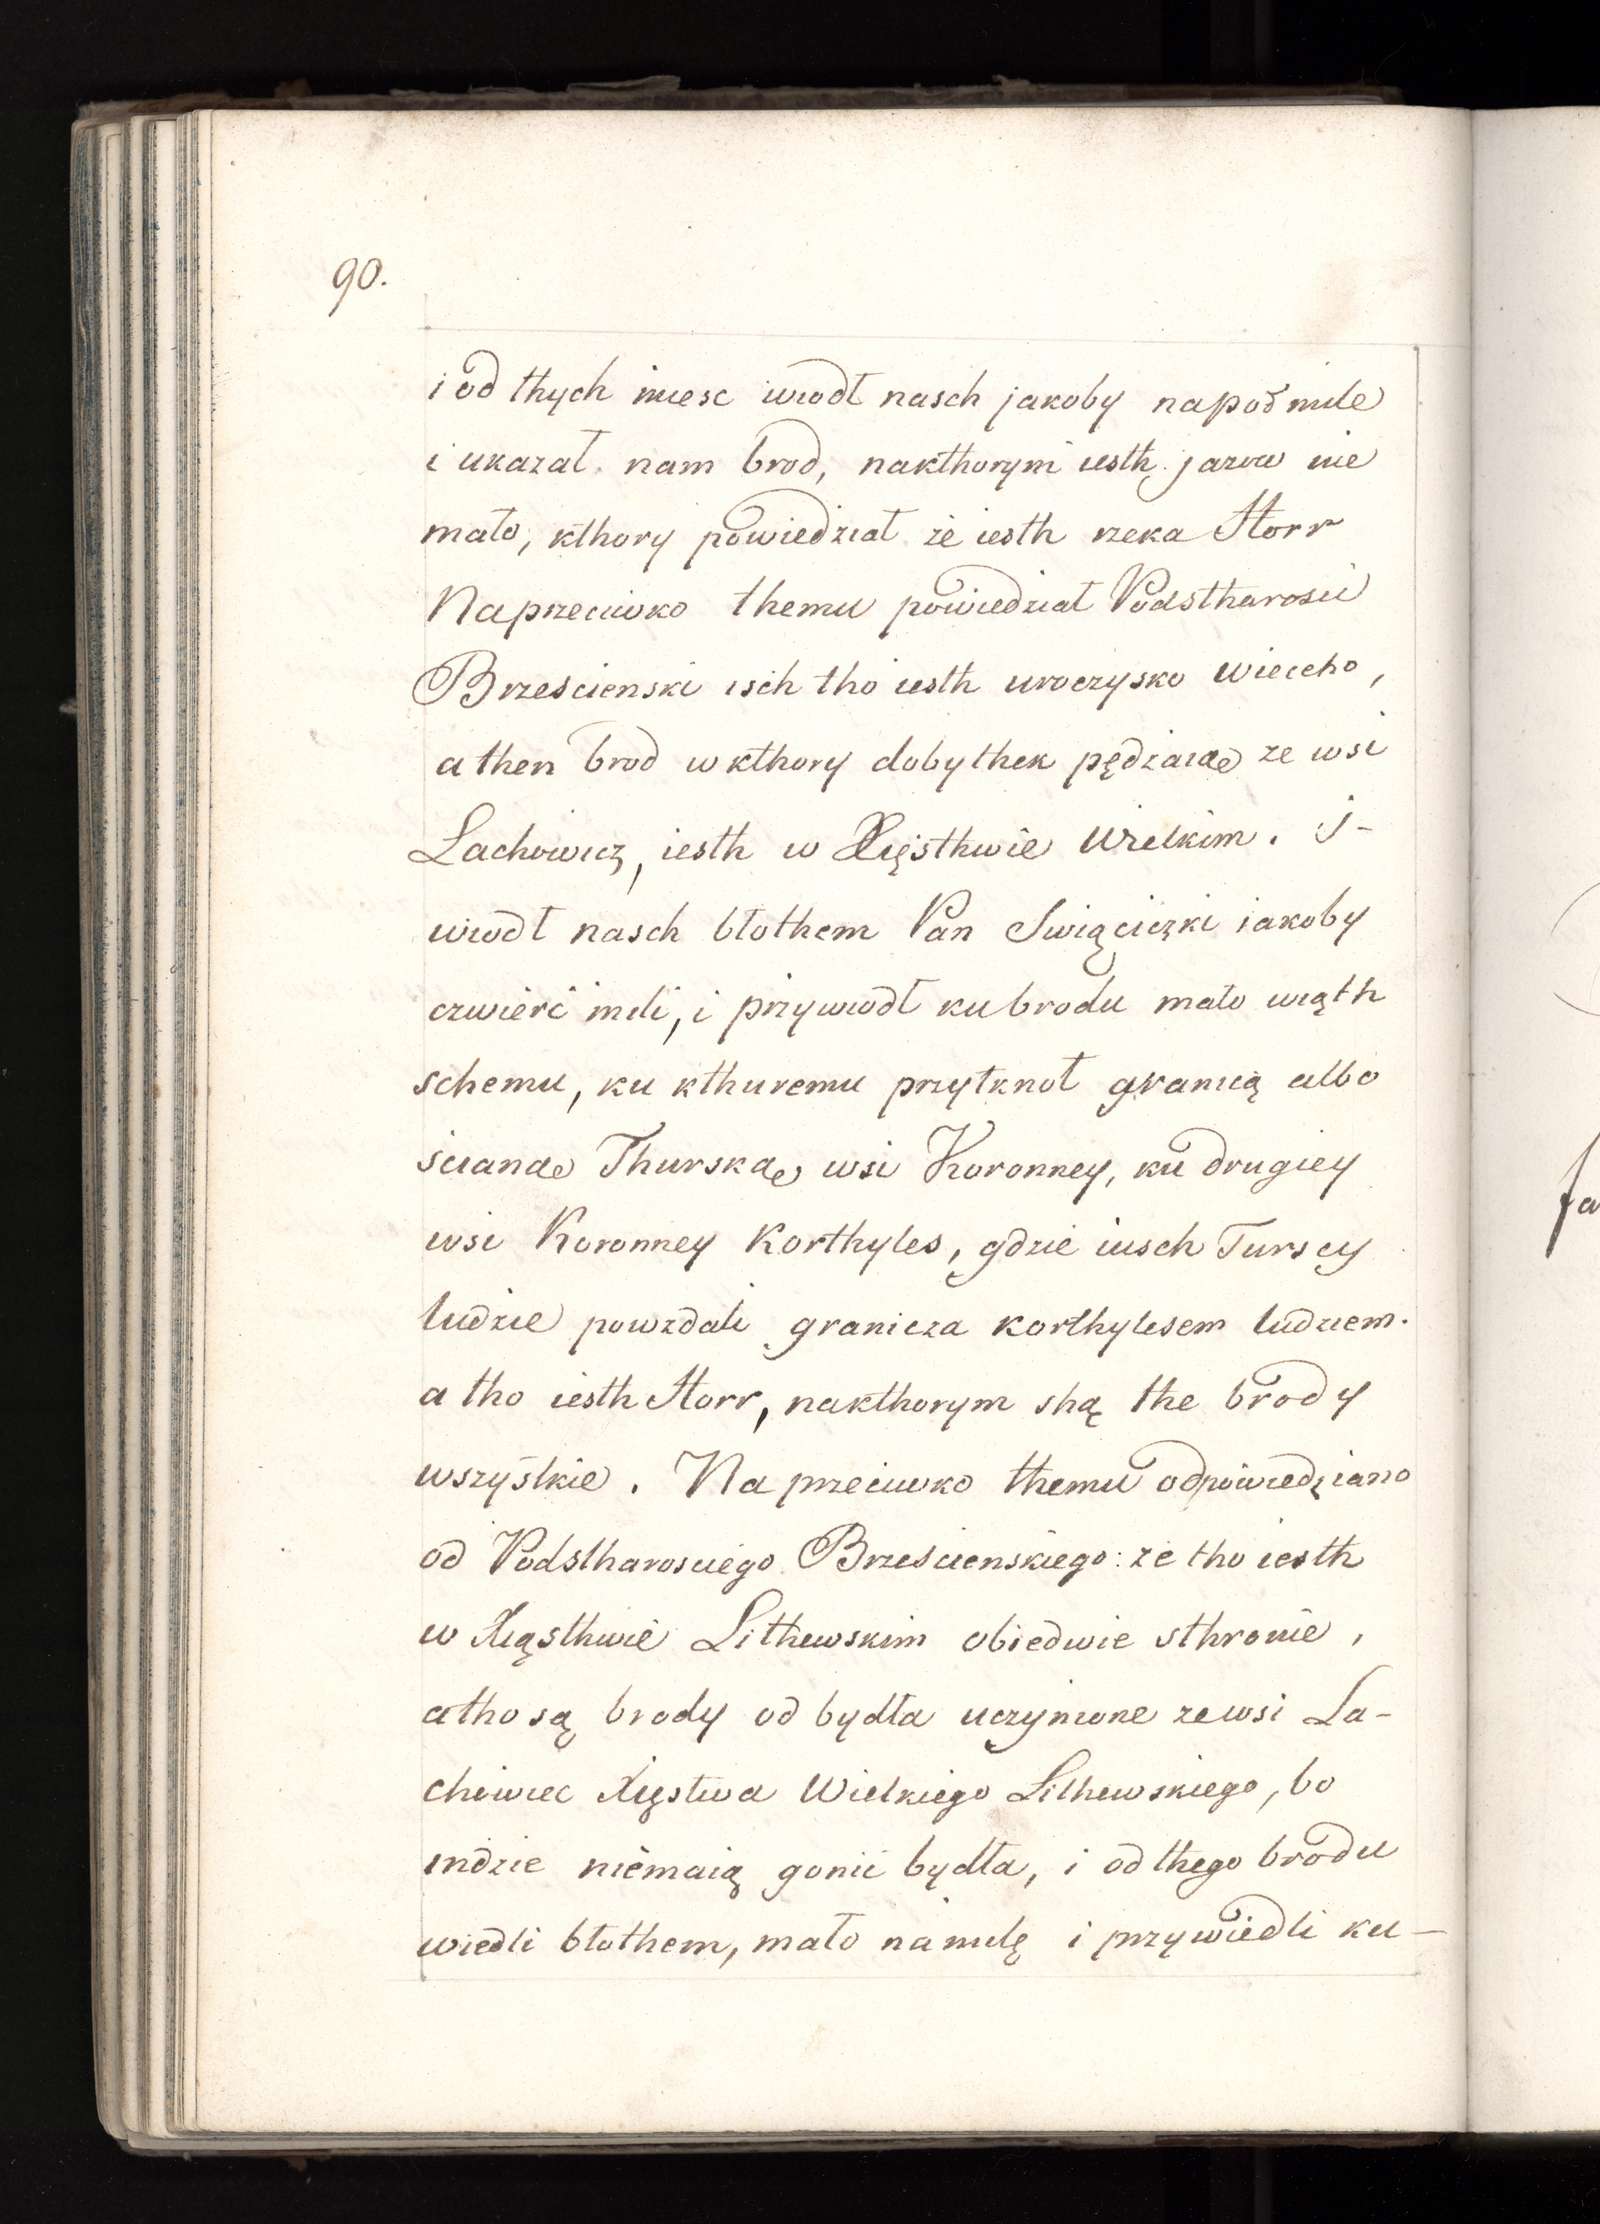 90.
i od thych miesc wiodł nasch jakoby napoł mile
i ukazał nam brod, nakthorym iesth jazow nie
mało, kthory powiedział że iesth rzeka Storr
Naprzeciwko themu powiedział Podstharosci
Brzescienski isch tho iesth uroczysko wieccho,
a then brod w kthory dobythek pędzaią ze wsi
Lachowicz, iesth w Xięsthwie Wielkim. J-
wiodł nasch błothem Pan Swięciczki iakoby
czwierć mili, i przywiodł ku brodu mało wiąth
schemu, ku kthuremu przytknoł granicą albo
ścianą Thurską wsi Koronney, ku drugiey
wsi Koronney Korthyles, gdzie iusch Turscy
ludzie powzdali granicza korthylesem ludziem.
a tho iesth Storr, nakthorym shą the brody
wszystkie. Na przeciwko themu odpowiedziano
od Podstharosciego Brzescienskiego: że tho iesth
w Xięsthwie Lithewskim obiedwie sthronie,
a tho są brody od bydła uczynione ze wsi La-
chowiec Xięstwa Wielkiego Lithewskiego, bo
indzie niemaią gonić bydła, i od thego brodu
wiedli błothem, mało na milę i przywiedli ku-
fa